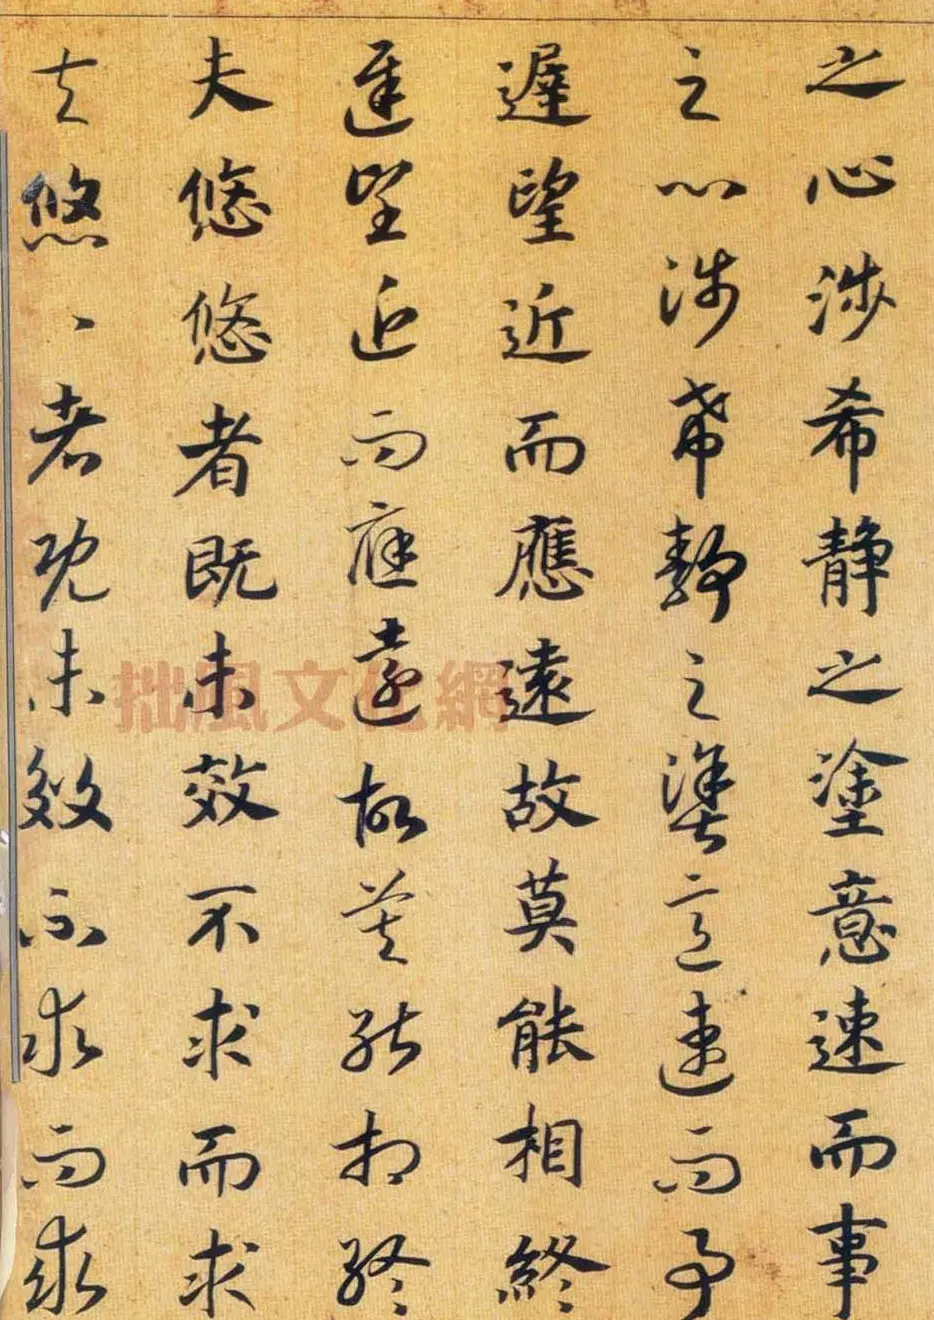 之心涉希静之塗意速而事
之心涉希静之塗意速而事
遲望近而應遠故莫能相終
遲望近而應遠故莫能相終
夫悠悠者既未效不求而求
夫悠〻者既未效不求而求
拙風文化網